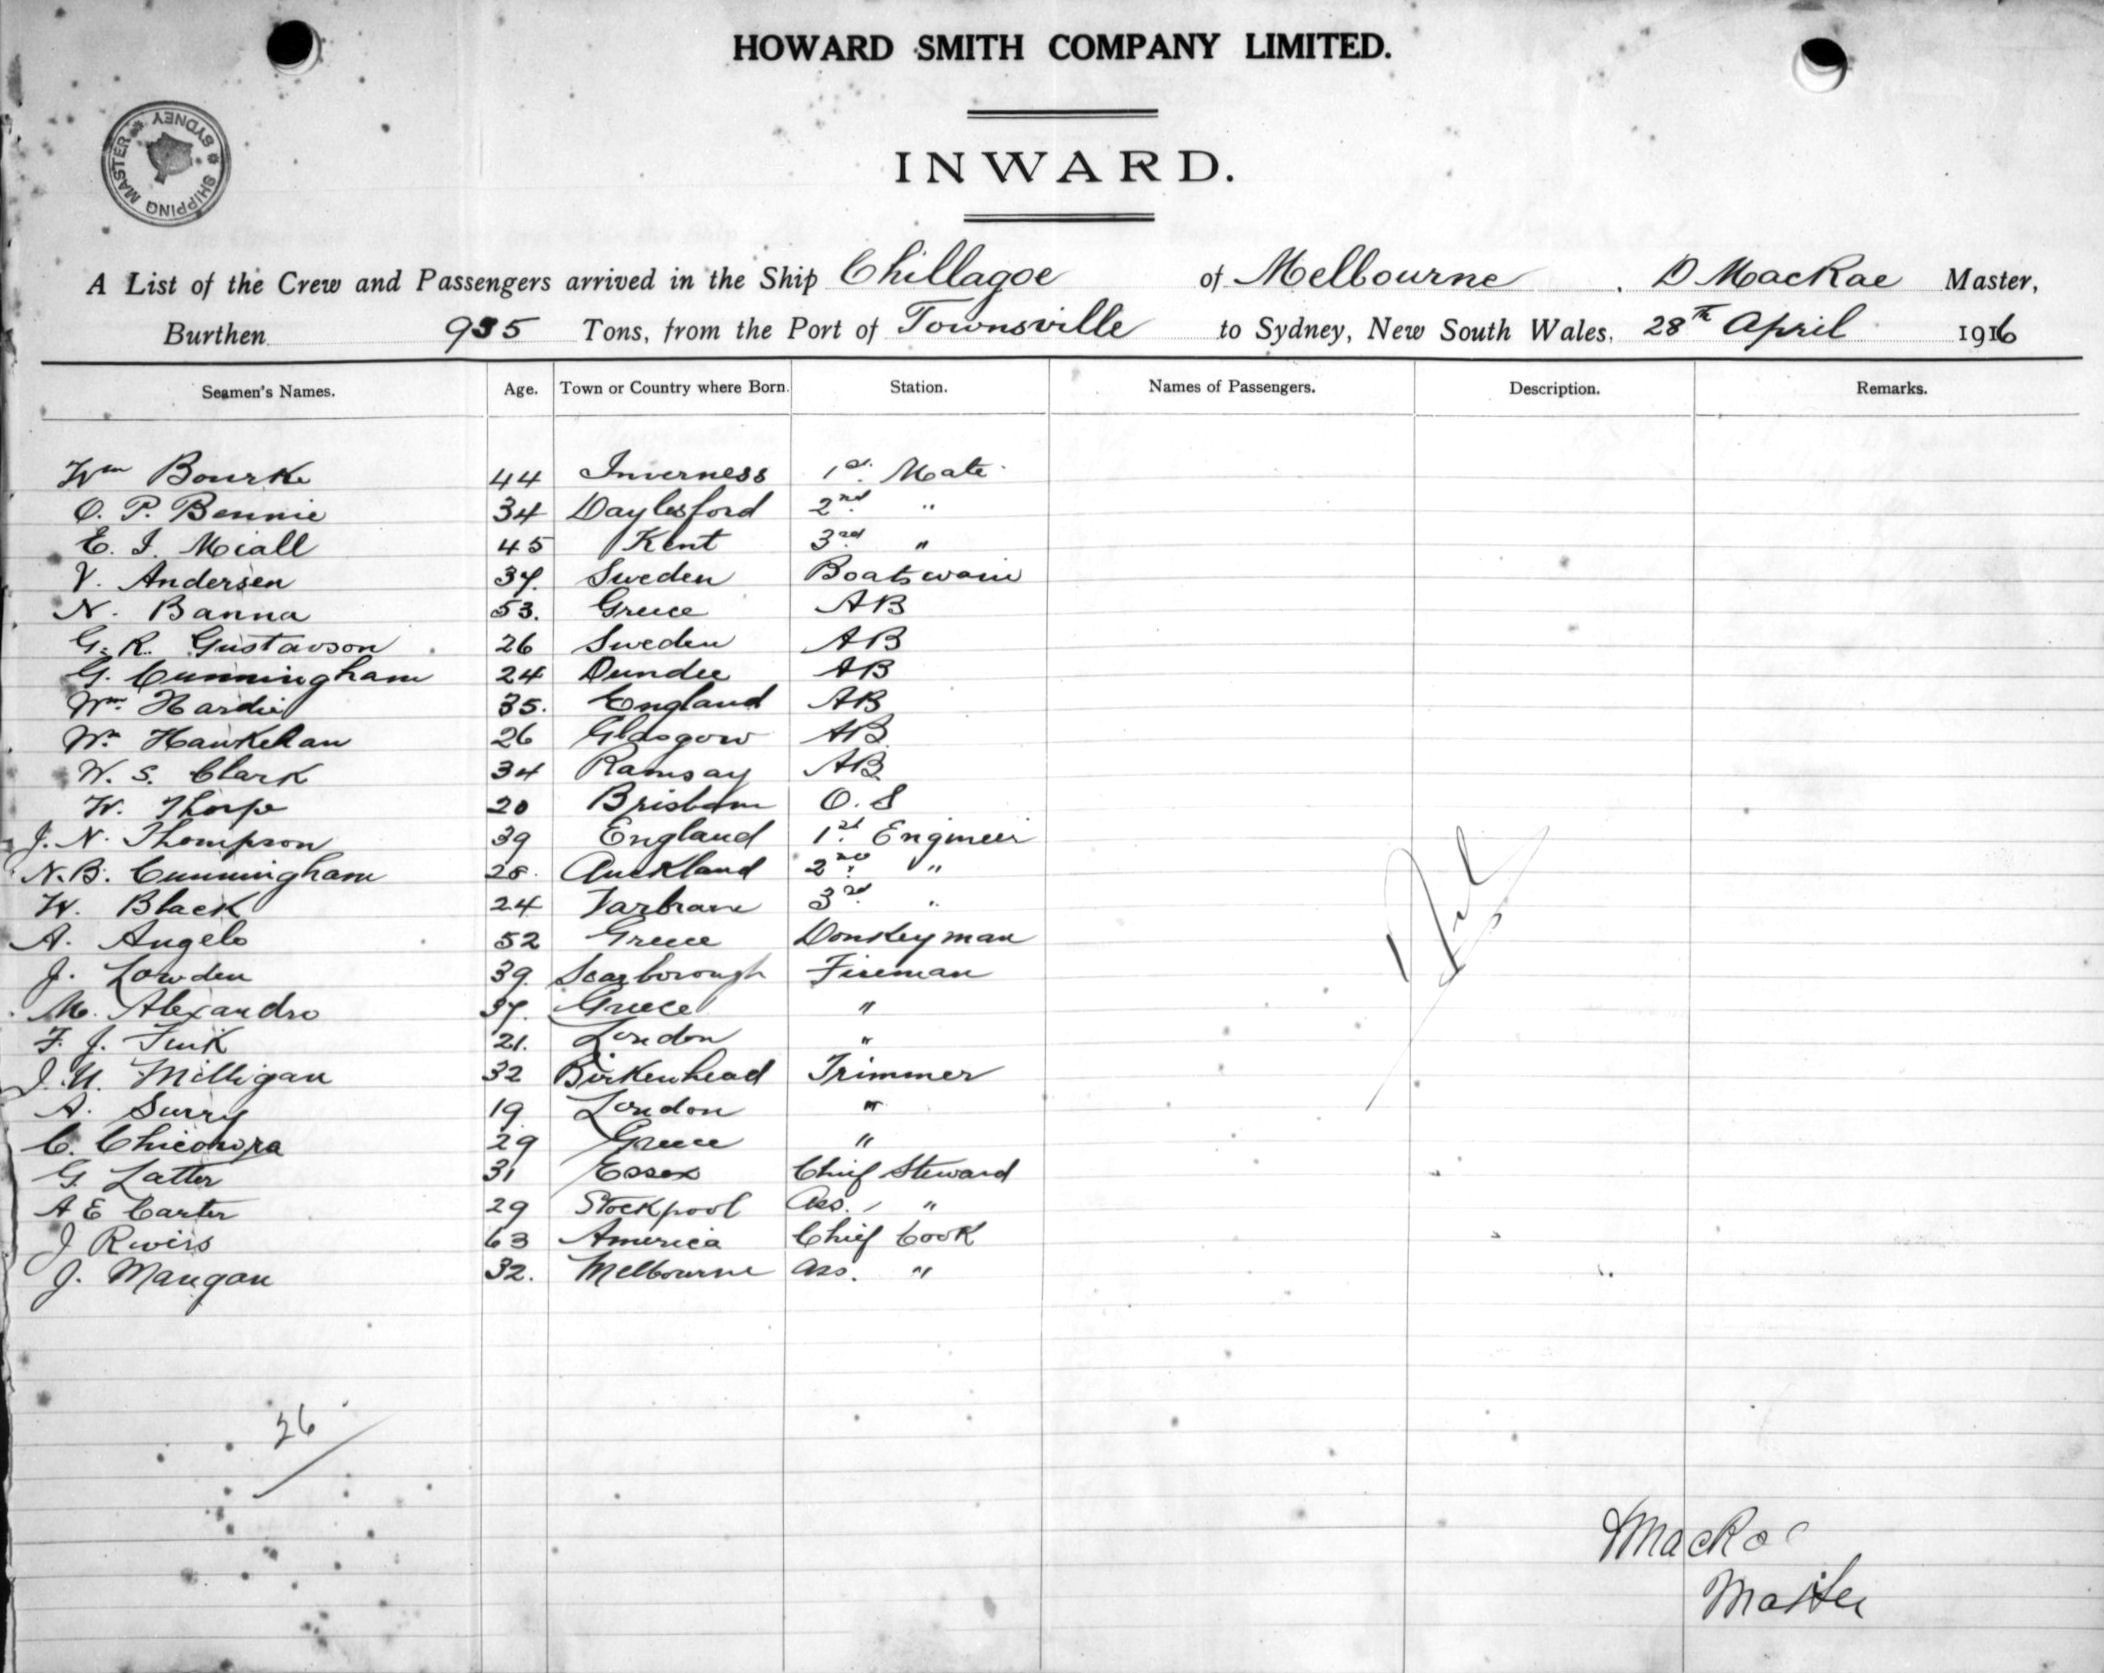 HOWARD SMITH COMPANY LIMITED.
SHIPPING MASTER * SYDNEY *
INWARD.
A List of the Crew and Passengers arrived in the Ship Chillagoe of Melbourne, D MacRae Master,
Burthen 935 Tons, from the Port of Townsville to Sydney, New South Wales, 28th April 1916
Seamen's Names. Age. Town or Country where Born. Station. Names of Passengers. Description. Remarks.
Wm Bourke 44 Inverness 1st Mate
O. P. Bennie 34 Daylesford 2nd "
E. I. Miall 45 Kent 3rd "
V. Andersen 37. Sweden Boatswain
N. Banna 53. Greece AB
G. R. Gustavson 26 Sweden AB
G. Cunningham 24 Dundee AB
Wm Hardie 35. England AB
Wm 26 Glasgow AB
W. S. Clark 34 Ramsay AB
W. Thorp 20 Brisbane O. S
J. N. Thompson 39 England 1st Engineer
N. B. Cunningham 28. Auckland 2nd "
W. Black 24 3rd "
A. Angelo 52 Greece Donkeyman
J. Lowden 39. Scarborough Fireman
M. Alexandro 37. Greece "
F. J. 21. London "
Milligan 32 Birkenhead Trimmer
A. Surry 19 London "
C. 29 Greece "
G. Latter 31 Essex Chief Steward
A E Carter 29 Stockpool Ass. "
J 63 America Chief Cook
J. Mangan 32. Melbourne Ass. "
Nil
26
DMacRae
Master